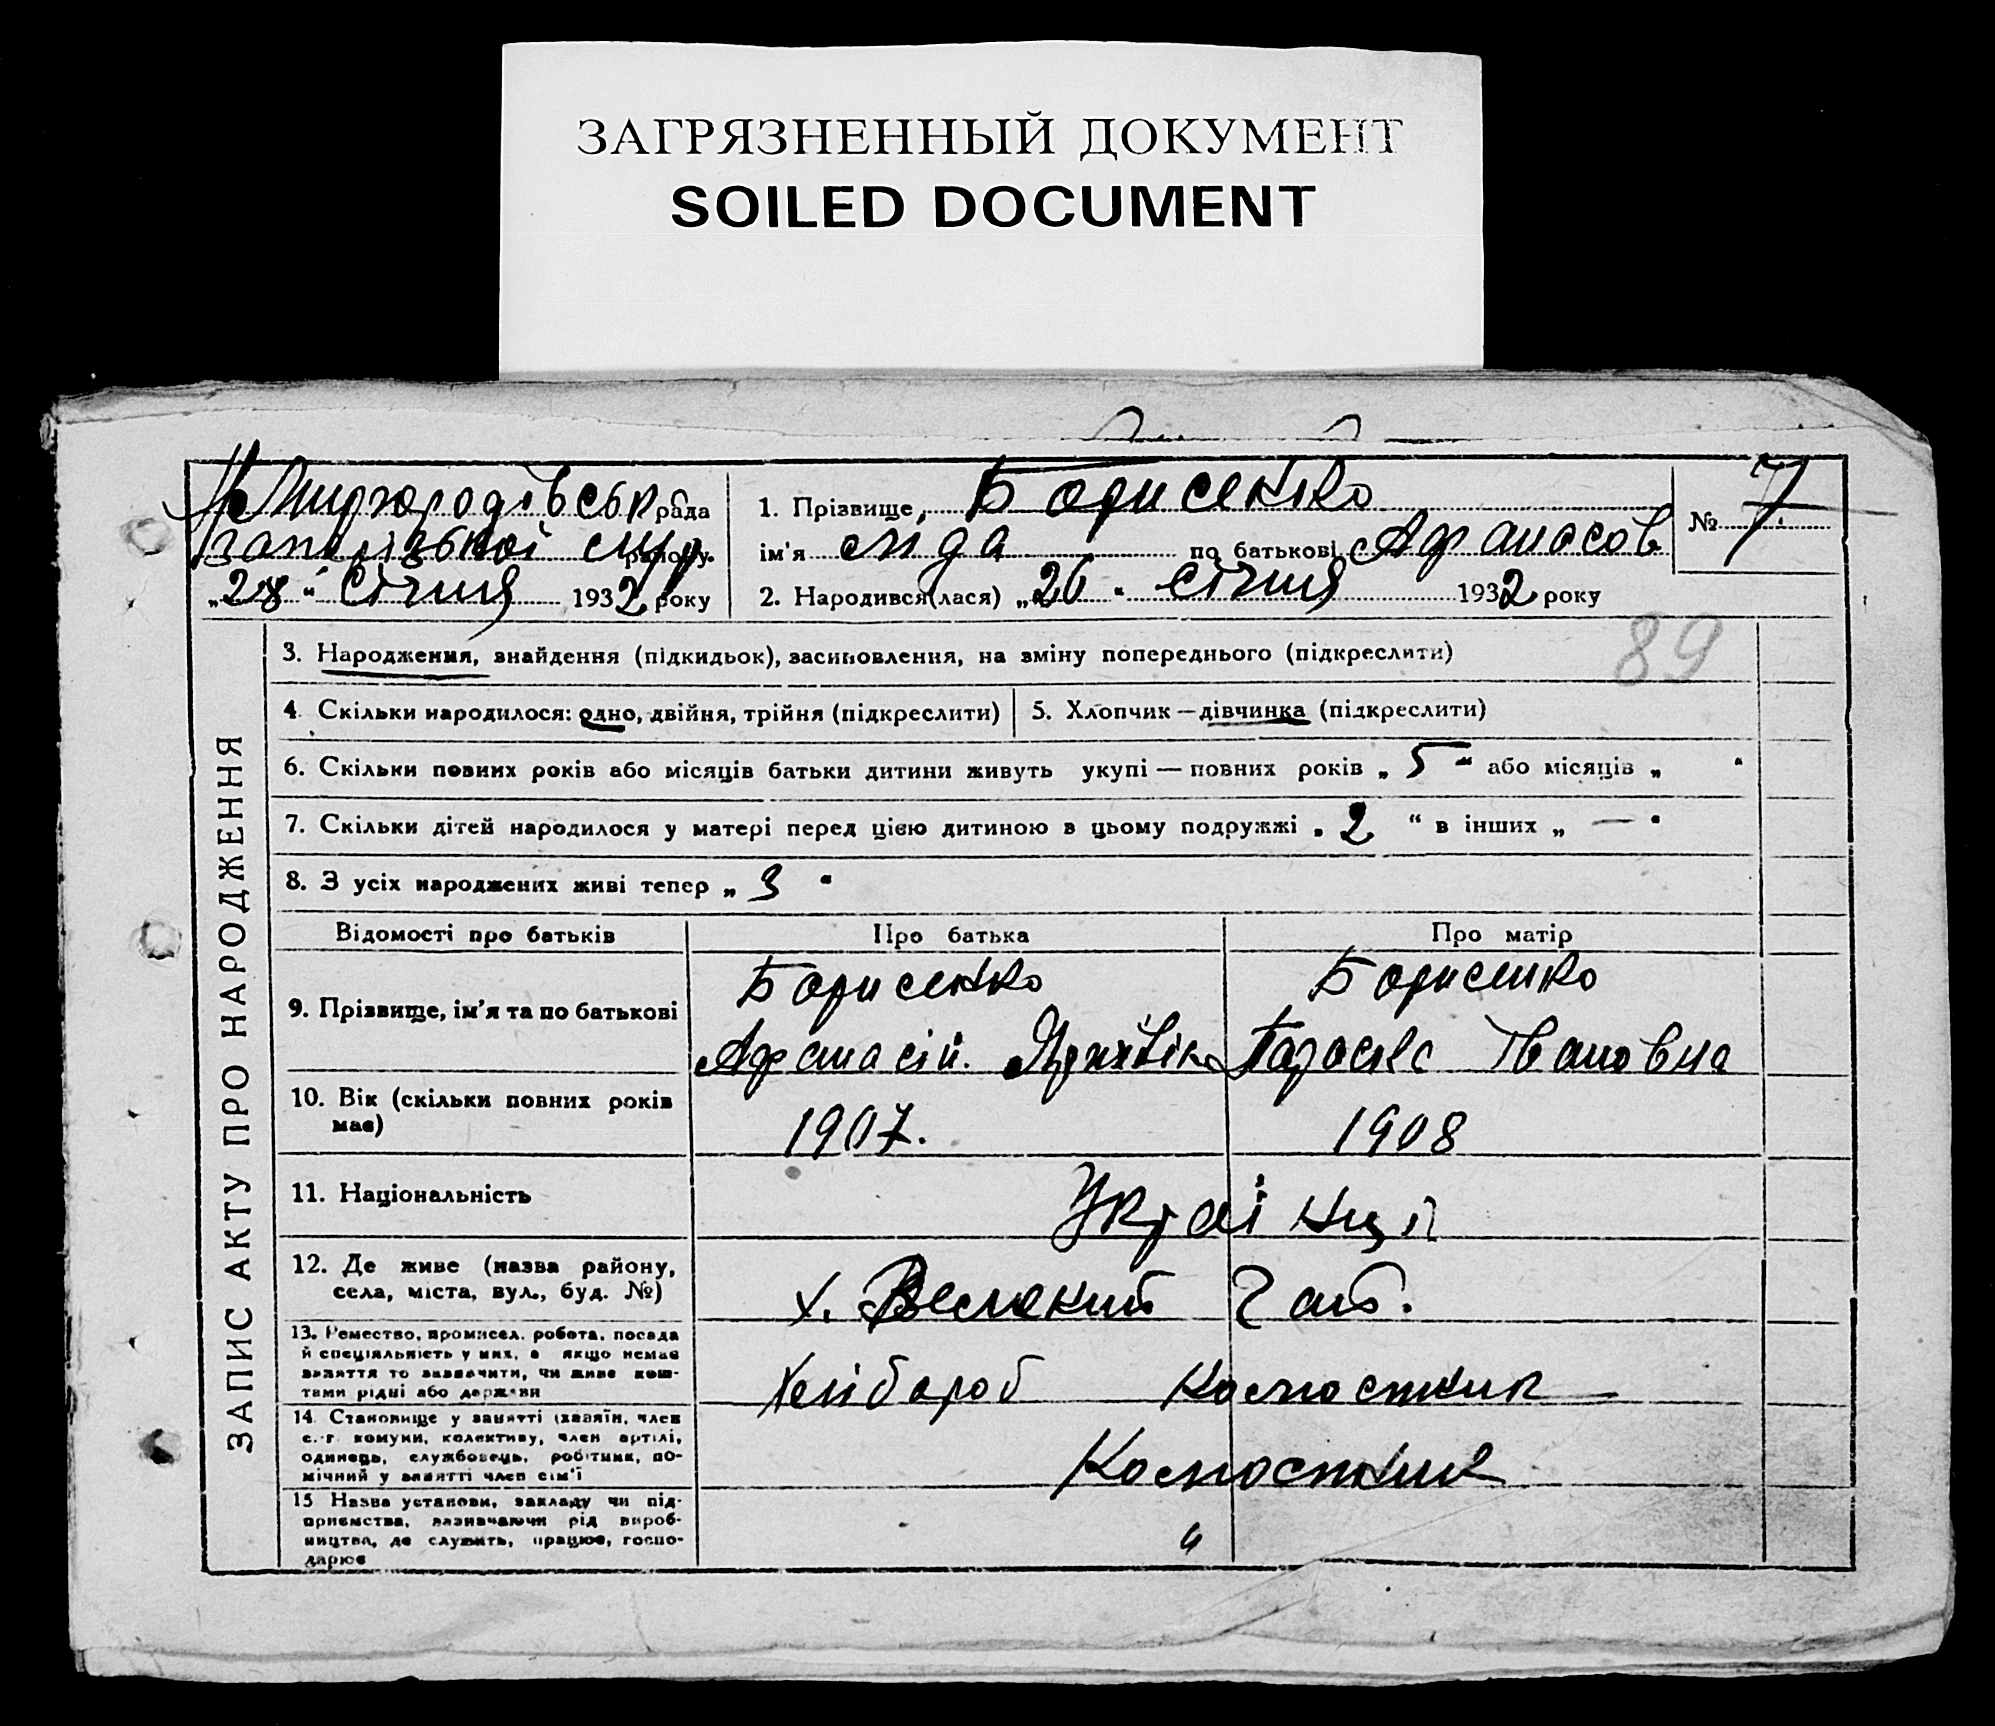 ЗАГРЯЗНЕННЫЙ ДОКУМЕНТ
SOILED DOCUMENT
рада
району
„28“ січня 1932 року
1. Прізвище Борисенко
ім'я Ліда по батькові Афанасов
2. Народився(лася) „26“ січня 1932 року
№ 7
89
ЗАПИС АКТУ ПРО НАРОДЖЕННЯ
3. Народження, знайдення (підкидьок), засиновлення, на зміну попереднього (підкреслити)
4. Скільки народилося: одно, двійня, трійня (підкреслити)
5. Хлопчик — дівчинка (підкреслити)
6. Скільки повних років або місяців батьки дитини живуть укупі — повних років „5“ або місяців „ “
7. Скільки дітей народилося у матері перед цією дитиною в цьому подружжі „2“ в інших „—“
8. З усіх народжених живі тепер „3“
Відомості про батьків Про батька Про матір
9. Прізвище, ім'я та по батькові
Борисенко Борисенко
Афанасій Івановна
10. Вік (скільки повних років має)
1907. 1908
11. Національність
Українці
12. Де живе (назва району, села, міста, вул., буд. №)
х. Великий Гай.
13. Ремество, промисел, робота, посада
й спеціяльність у них, а якщо немає
заняття то зазначити, чи живе кош-
тами рідні або держави
Хлібороб Колгоспник
14. Становище у занятті (хазяїн, член
с.-г. комуни, колективу, член артілі,
одинець, службовець, робітник, по-
мічний у занятті член сім'ї
Колгоспник
15 Назва установи, закладу чи під-
приємства, зазначаючи рід вироб-
ництва, де служить, працює, госпо-
дарює
"